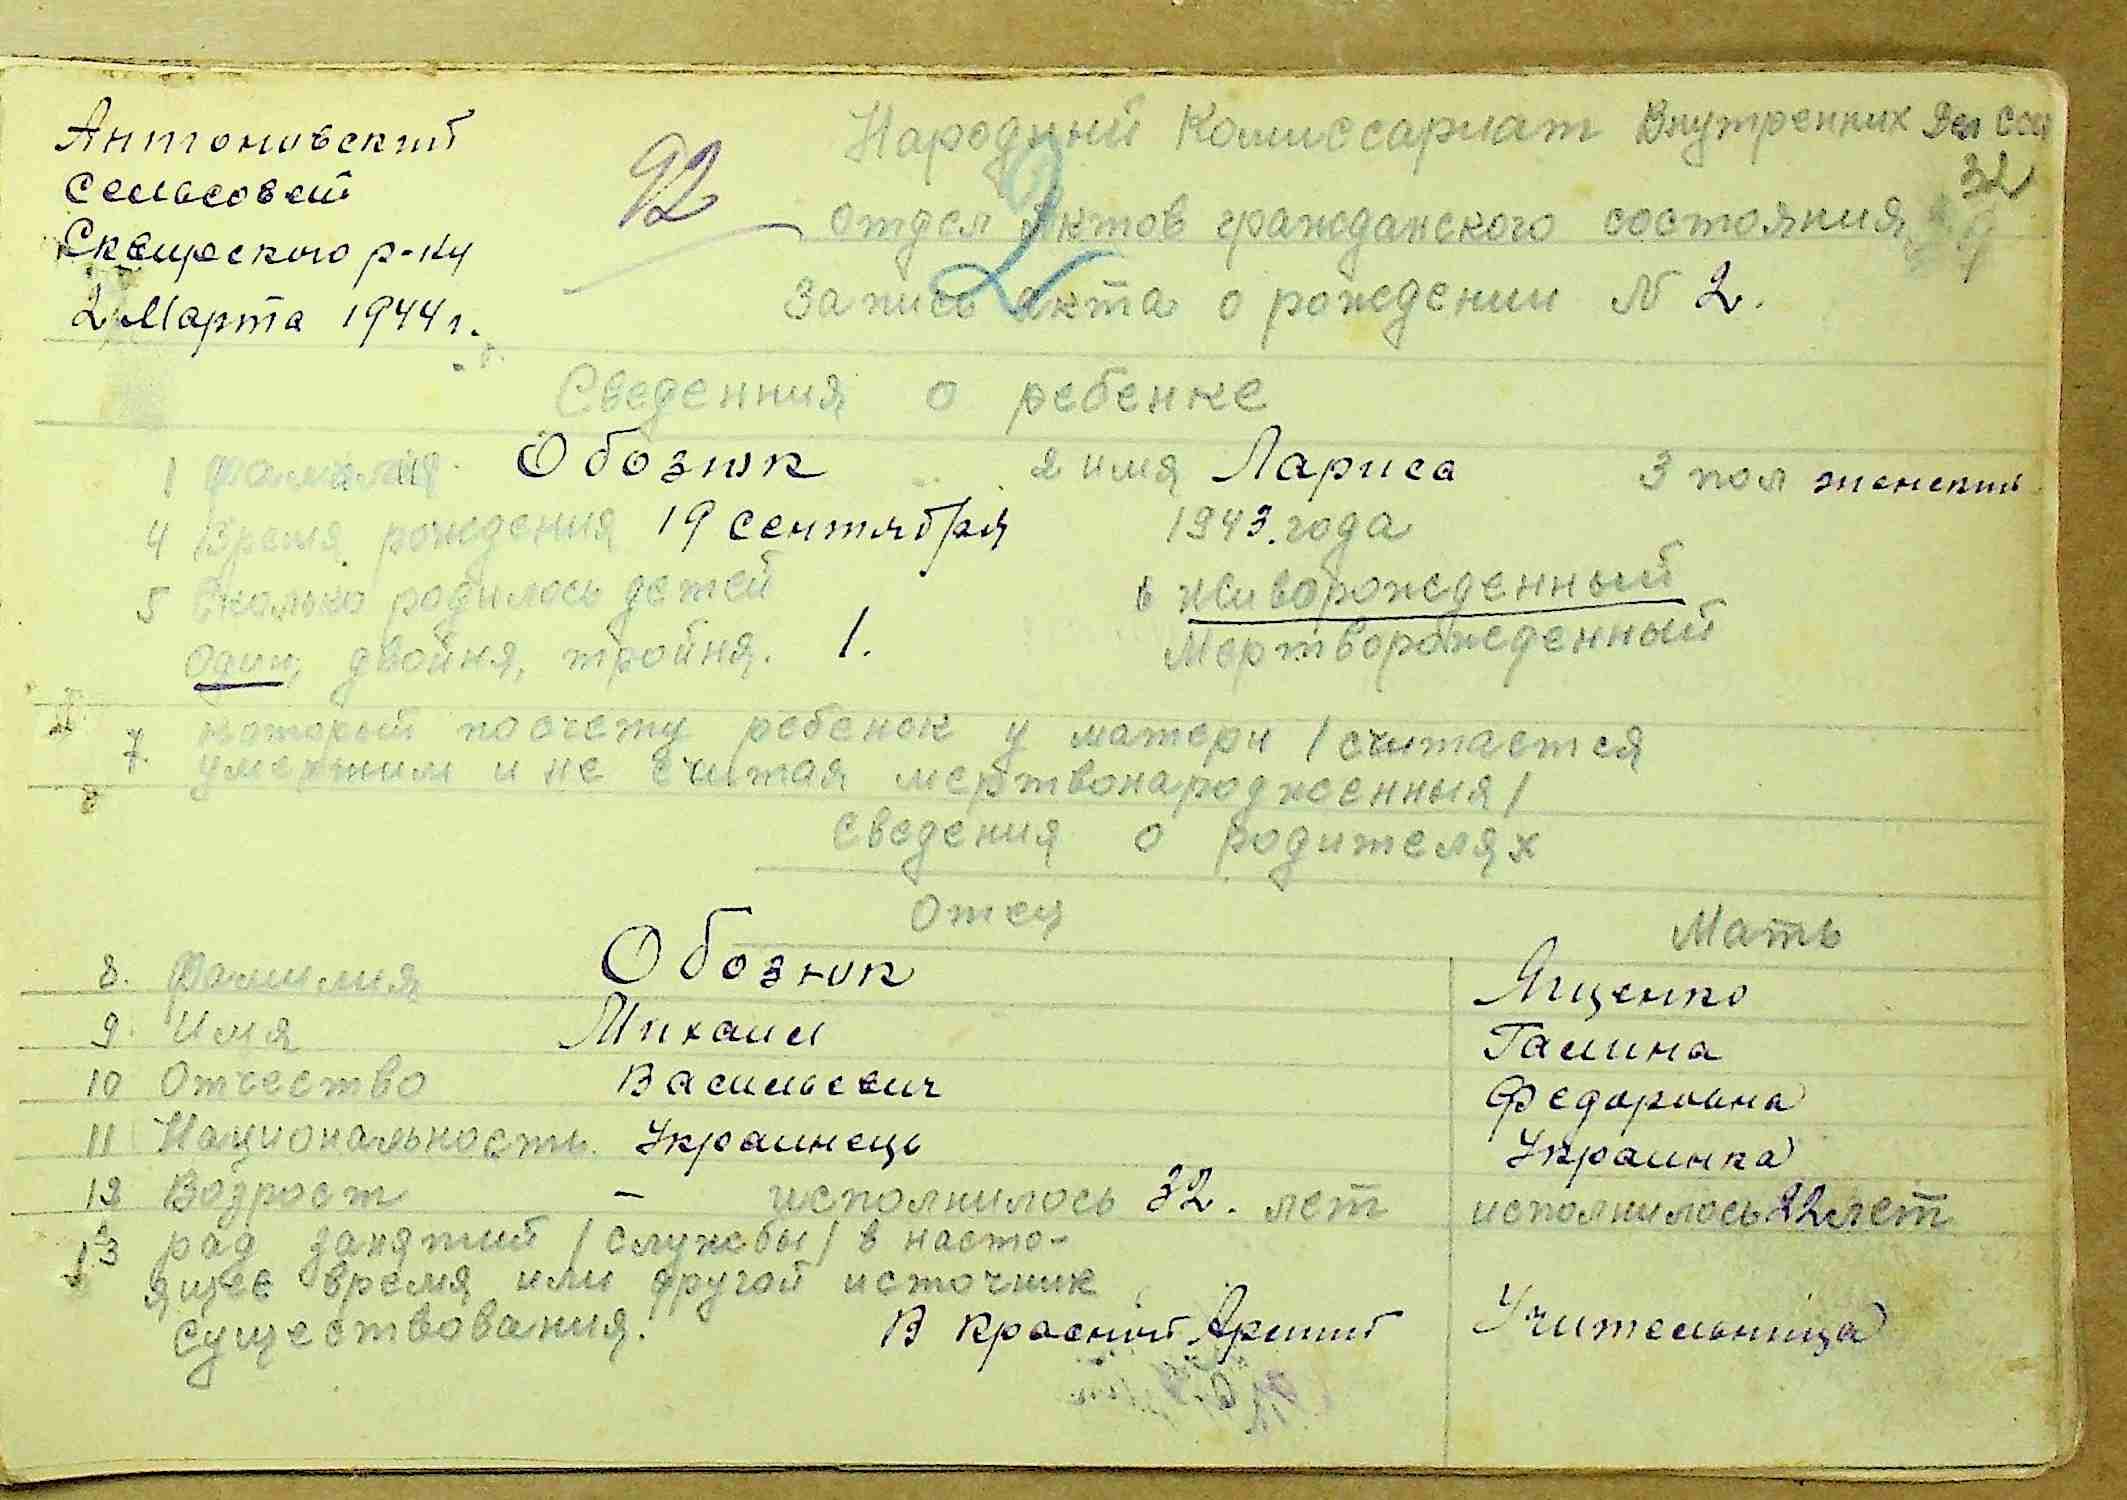 Антоновский
Сельсовет
Сквирского р-ну
2 Марта 1944 г.
92
2
Народный Комиссариат Внутренних Дел ССС
32
отдел Актов гражданского состояния
Запись Акта о рождении N 2.
Сведенния о ребенке
1 Фамилия Обозюк 2 имя Лариса 3 пол женский
4 Время рождения 19 сентября 1943. года
5 Сколько родилось детей 6 живорожденный
один, двойня, тройня. 1. Мертворожденный
7. который по счету ребенок у матери / считается
умершим и не считая мертвонародженныя /
Сведения о родителях
Отец Мать
8. Фамилия Обозюк Ященко
9. Имя Михаил Галина
10 Отчество Васильевич Федоровна
11 Национальность. Украинець Украинка
12 Возраст – исполнилось 32. лет исполнилось 22 лет
13 род занятий / службы / в насто-
ящее время или другой источник
существования. В Красний Армии Учительница